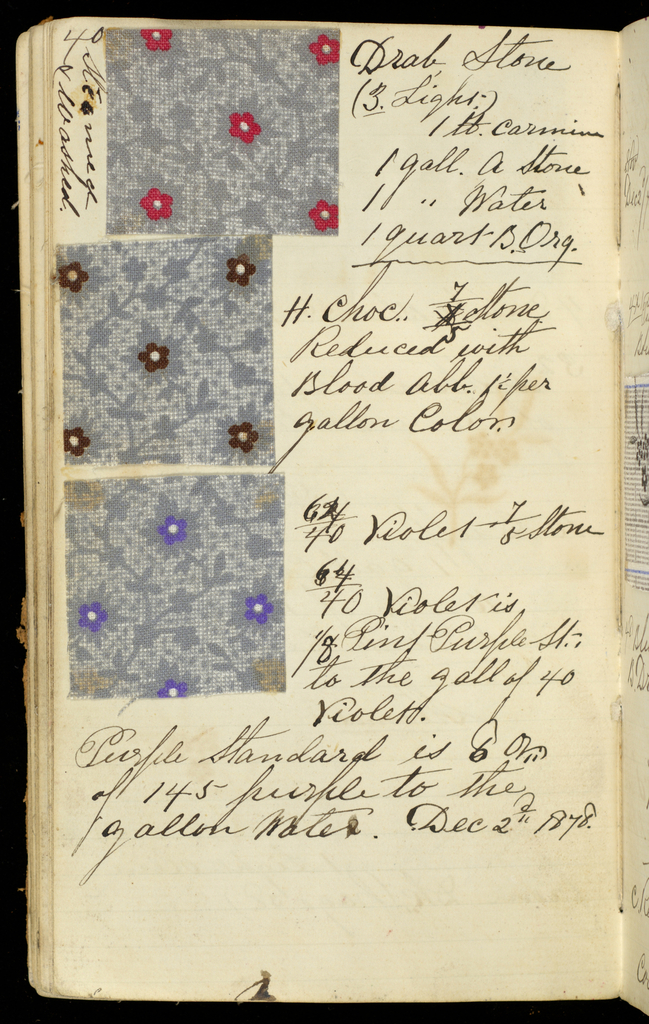 40 Steamed
& Washed.
Drab Stone
(3. Light.)
1 lb. Carmine
1 gall. A Stone
1 " Water
1 quart B. Org.
H. Choc. 7/5 Stone
Reduced with
Blood Abb. per
gallon Color.
64/40 Violet 7/5 Stone
64/40 Violet is
1/8 Pint Purple St.
to the gall of 40
Violet.
Purple Standard is 6 Oz
of 145 purple to the
gallon Water. Dec 2d 1878.